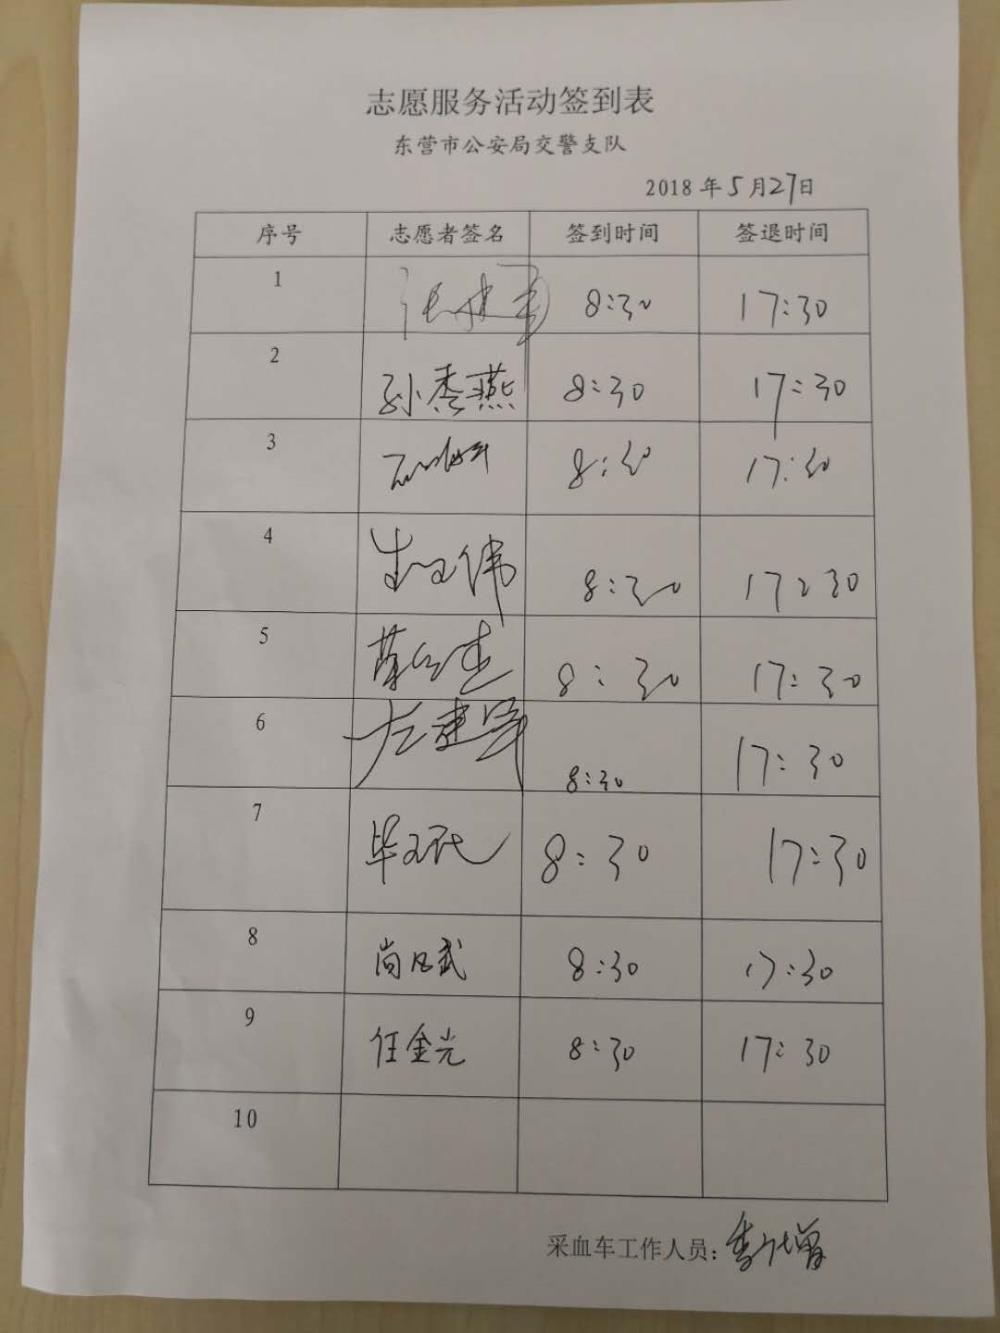 志愿服务活动签到表
东营市公安局交警支队
2018年5月27日
序号 志愿者签名 签到时间 签退时间
1 8:30 17:30
2 孙秀燕 8:30 17:30
3 8:30 17:30
4 8:30 17:30
5 8:30 17:30
6 左建军 8:30 17:30
7 8:30 17:30
8 尚风武 8:30 17:30
9 任金光 8:30 17:30
10
采血车工作人员: